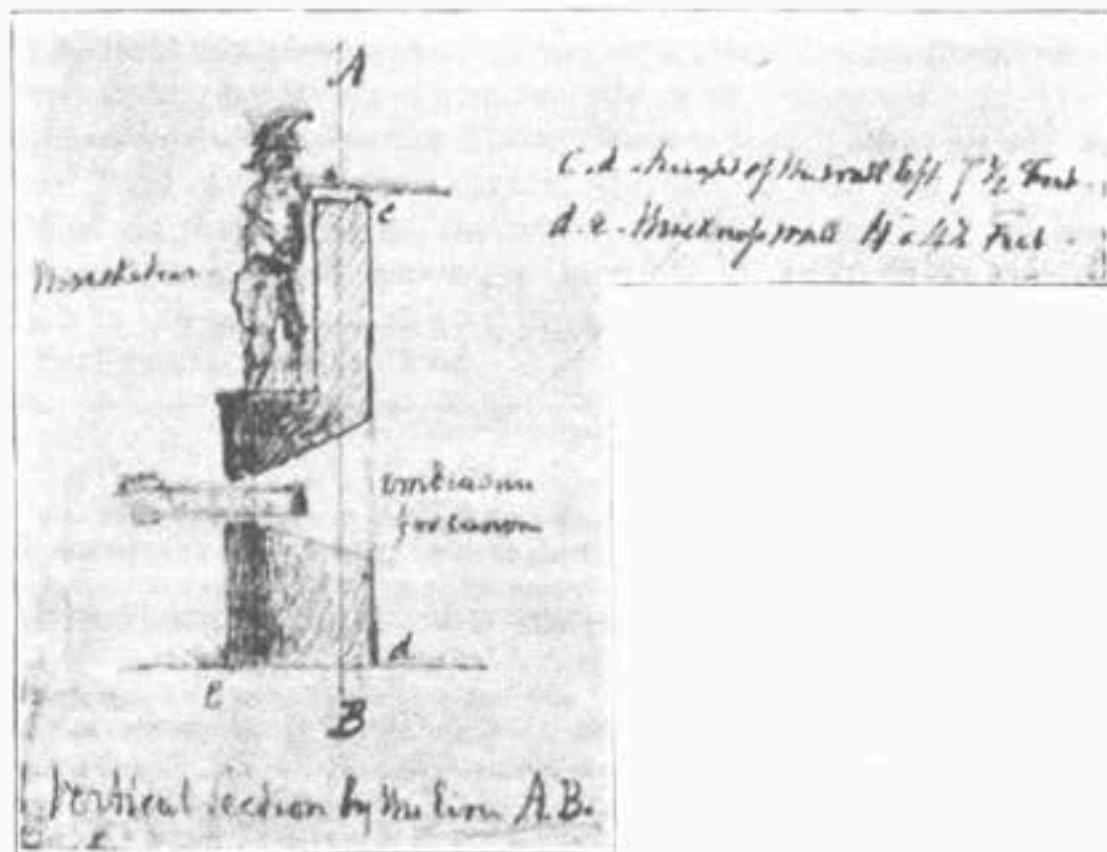 A
C.d. height of the wall left 7 1/2 Feet.
d.e. thickness wall 4 a 4½ Feet.
c
Musketeer
embrasure
for canon
d
e
B
Vertical section by the line A.B.